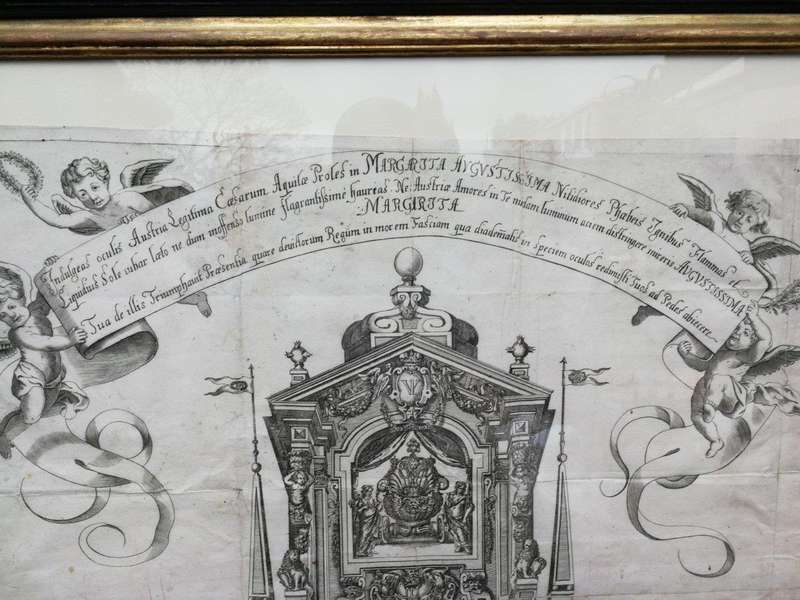 Indulgeas oculis Austria Legitima Cæsarum Aquilæ Proles in MARGARITA AVGVSTISSIMA Nitidiores Phæbeis Ignibus Flammas et
Sole iubar læto ne dum inoffenso lumine flagrantissimè haureas. Ne Austriæ Amores in Te nudam luminum aciem distringere AVGVSTISSIMA
MARGARITA
Tua de illis Triumphant Præsentia quare deuictorum Regum in morem Fasciam qua diadematis in speciem oculos redimisti Tuos ad Pedes abiicere